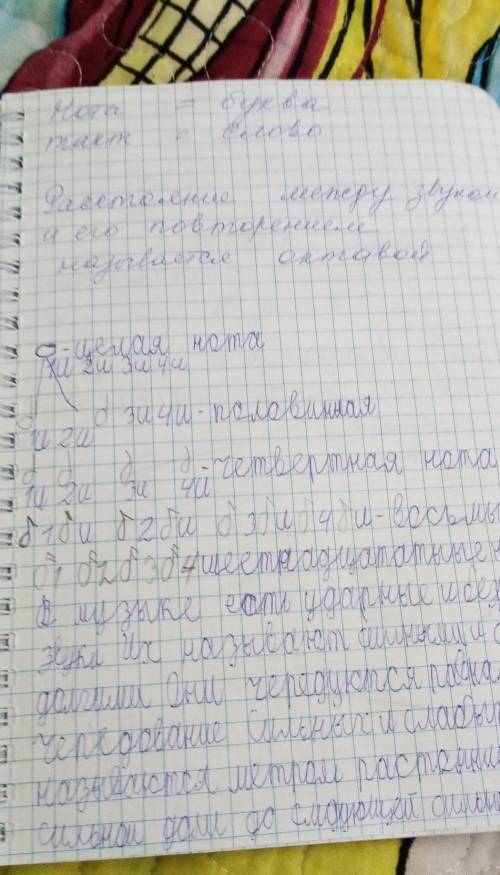 Нота = буква
такт = слово
Расстояние между звуком
и его повторением
называется октавой
-целая нота
1и 2и 3и 4и
1и 2и 3и 4и-половинная
1и 2и 3и 4и -четвертная нота
1 и 2 и 3 и 4 и-восьмы
1 2 3 4
В музыке есть ударные и без
звуки Их называют сильными и с
долями Они чередуются
чередование сильных и слабы
называются метром растояние
сильной доли до следующей сильно